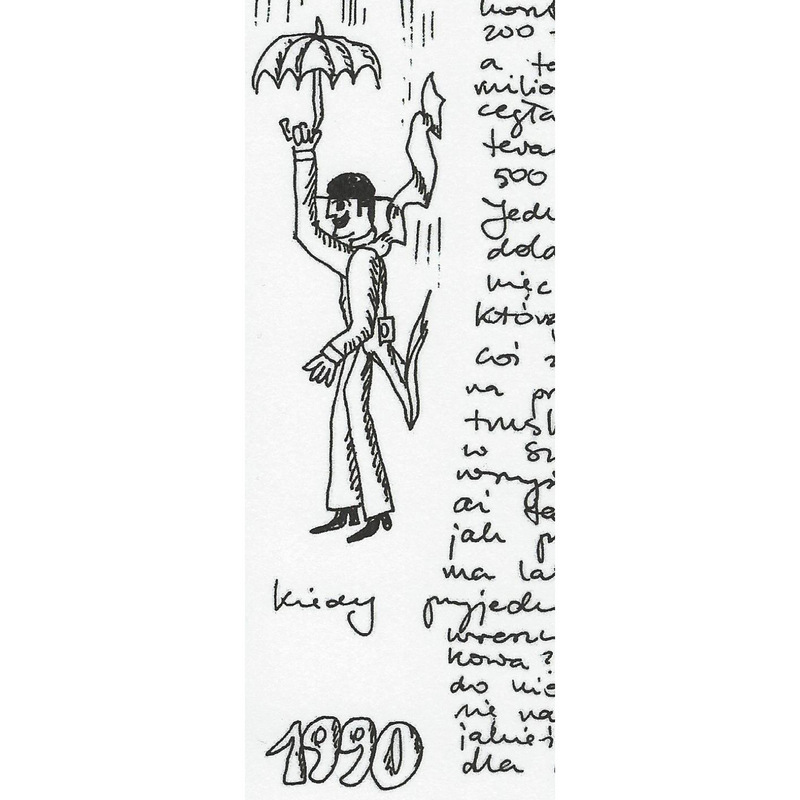 200
a te
milio
cegła
tera
500
Jedn
dola
więc
któr
coś z
na pr
trusk
w
wszys
aż te
jak p
ma la
kiedy przyjed
wreszc
kowa?
do nie
się na
jakieś
dla
1990